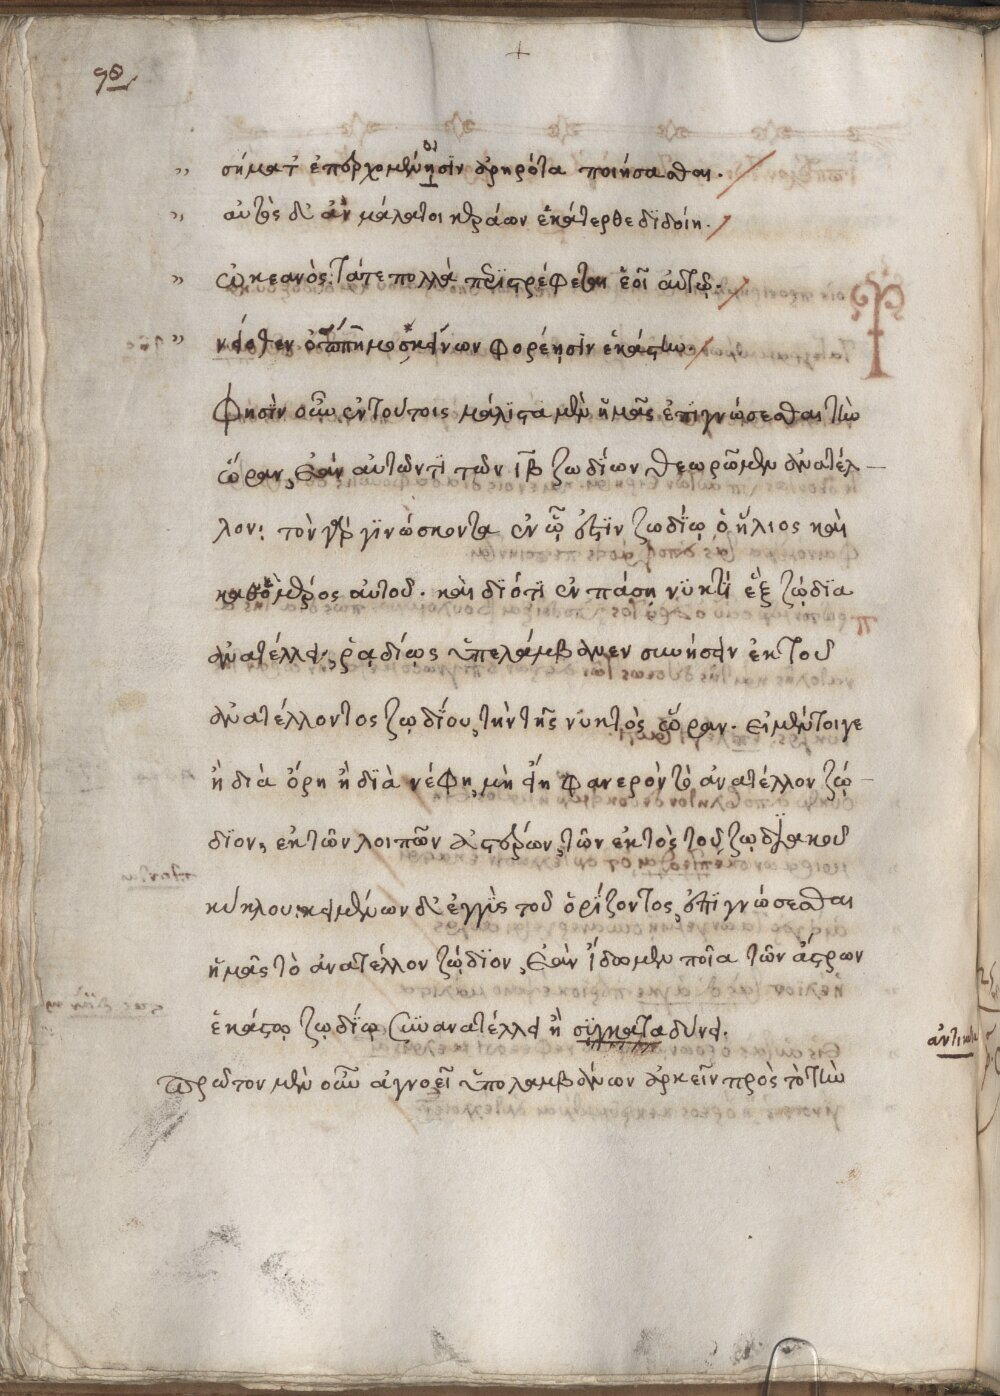 σήματ' ἐπερχομένῃσϊν ἀρηρότα ποιήσασθαι.
αὐτὸς δ' ἂν μάλατοι κεράων ἑκάτερθε δϊδοίη.
ὠκεανὸς. τάτε πολλὰ περϊστρέφεται ἑοῖ αὐτῷ.
νέοθεν φορέησϊν ἑκάστην.
Φησὶν οὖν ἐν τούτοις μάλϊστα μὲν ἡμᾶς ἐπϊγνώσεσθαι τὴν
ὥραν, ἐὰν αὐτῶν τϊ τῶν ιβ ζωδίων θεωρῶμεν ἀνατέλ
λον: τὸν γὰρ γϊνώσκοντα ἐν ᾧ ἐστϊν ζωδίῳ ὁ ἥλιος καὶ
καθ' ὃ μέρος αὐτοῦ. καὶ δϊότϊ ἐν πάσῃ νϋκτὶ ἓξ ζῴδϊα
ἀνατέλλει, ῥᾳδίως ὑπελάμβανεν συνήσειν ἐκ τοῦ
ἀνατέλλοντος ζῳδΐου, τὴν τῆς νυκτὸς ὥραν. εἰ μέντοιγε
ἢ διὰ ὄρη ἢ δϊὰ νέφη, μὴ εἴη φανερὸν τὸ ἀνατέλλον ζῴ
δϊον, ἐκ τῶν λοιπῶν ἀστέρων, τῶν ἐκτὸς τοῦ ζῳδϊακοῦ
κύκλου. κειμένων δὲ ἐγγὺς τοῦ ὁρΐζοντος, ἐπϊγνώσεσθαι
ἡμᾶς τὸ ἀνατέλλον ζῴδϊον, ἐὰν ἴδωμεν ποῖα τῶν ἄστρων
ἑκάστῳ ζῳδΐῳ συνανατέλλει ἢ σϋγκαταδύνει.
πρῶτον μὲν οὖν ἀγνοεῖ ὑπολαμβάνων ἀρκεῖν πρὸς τὸ τὴν